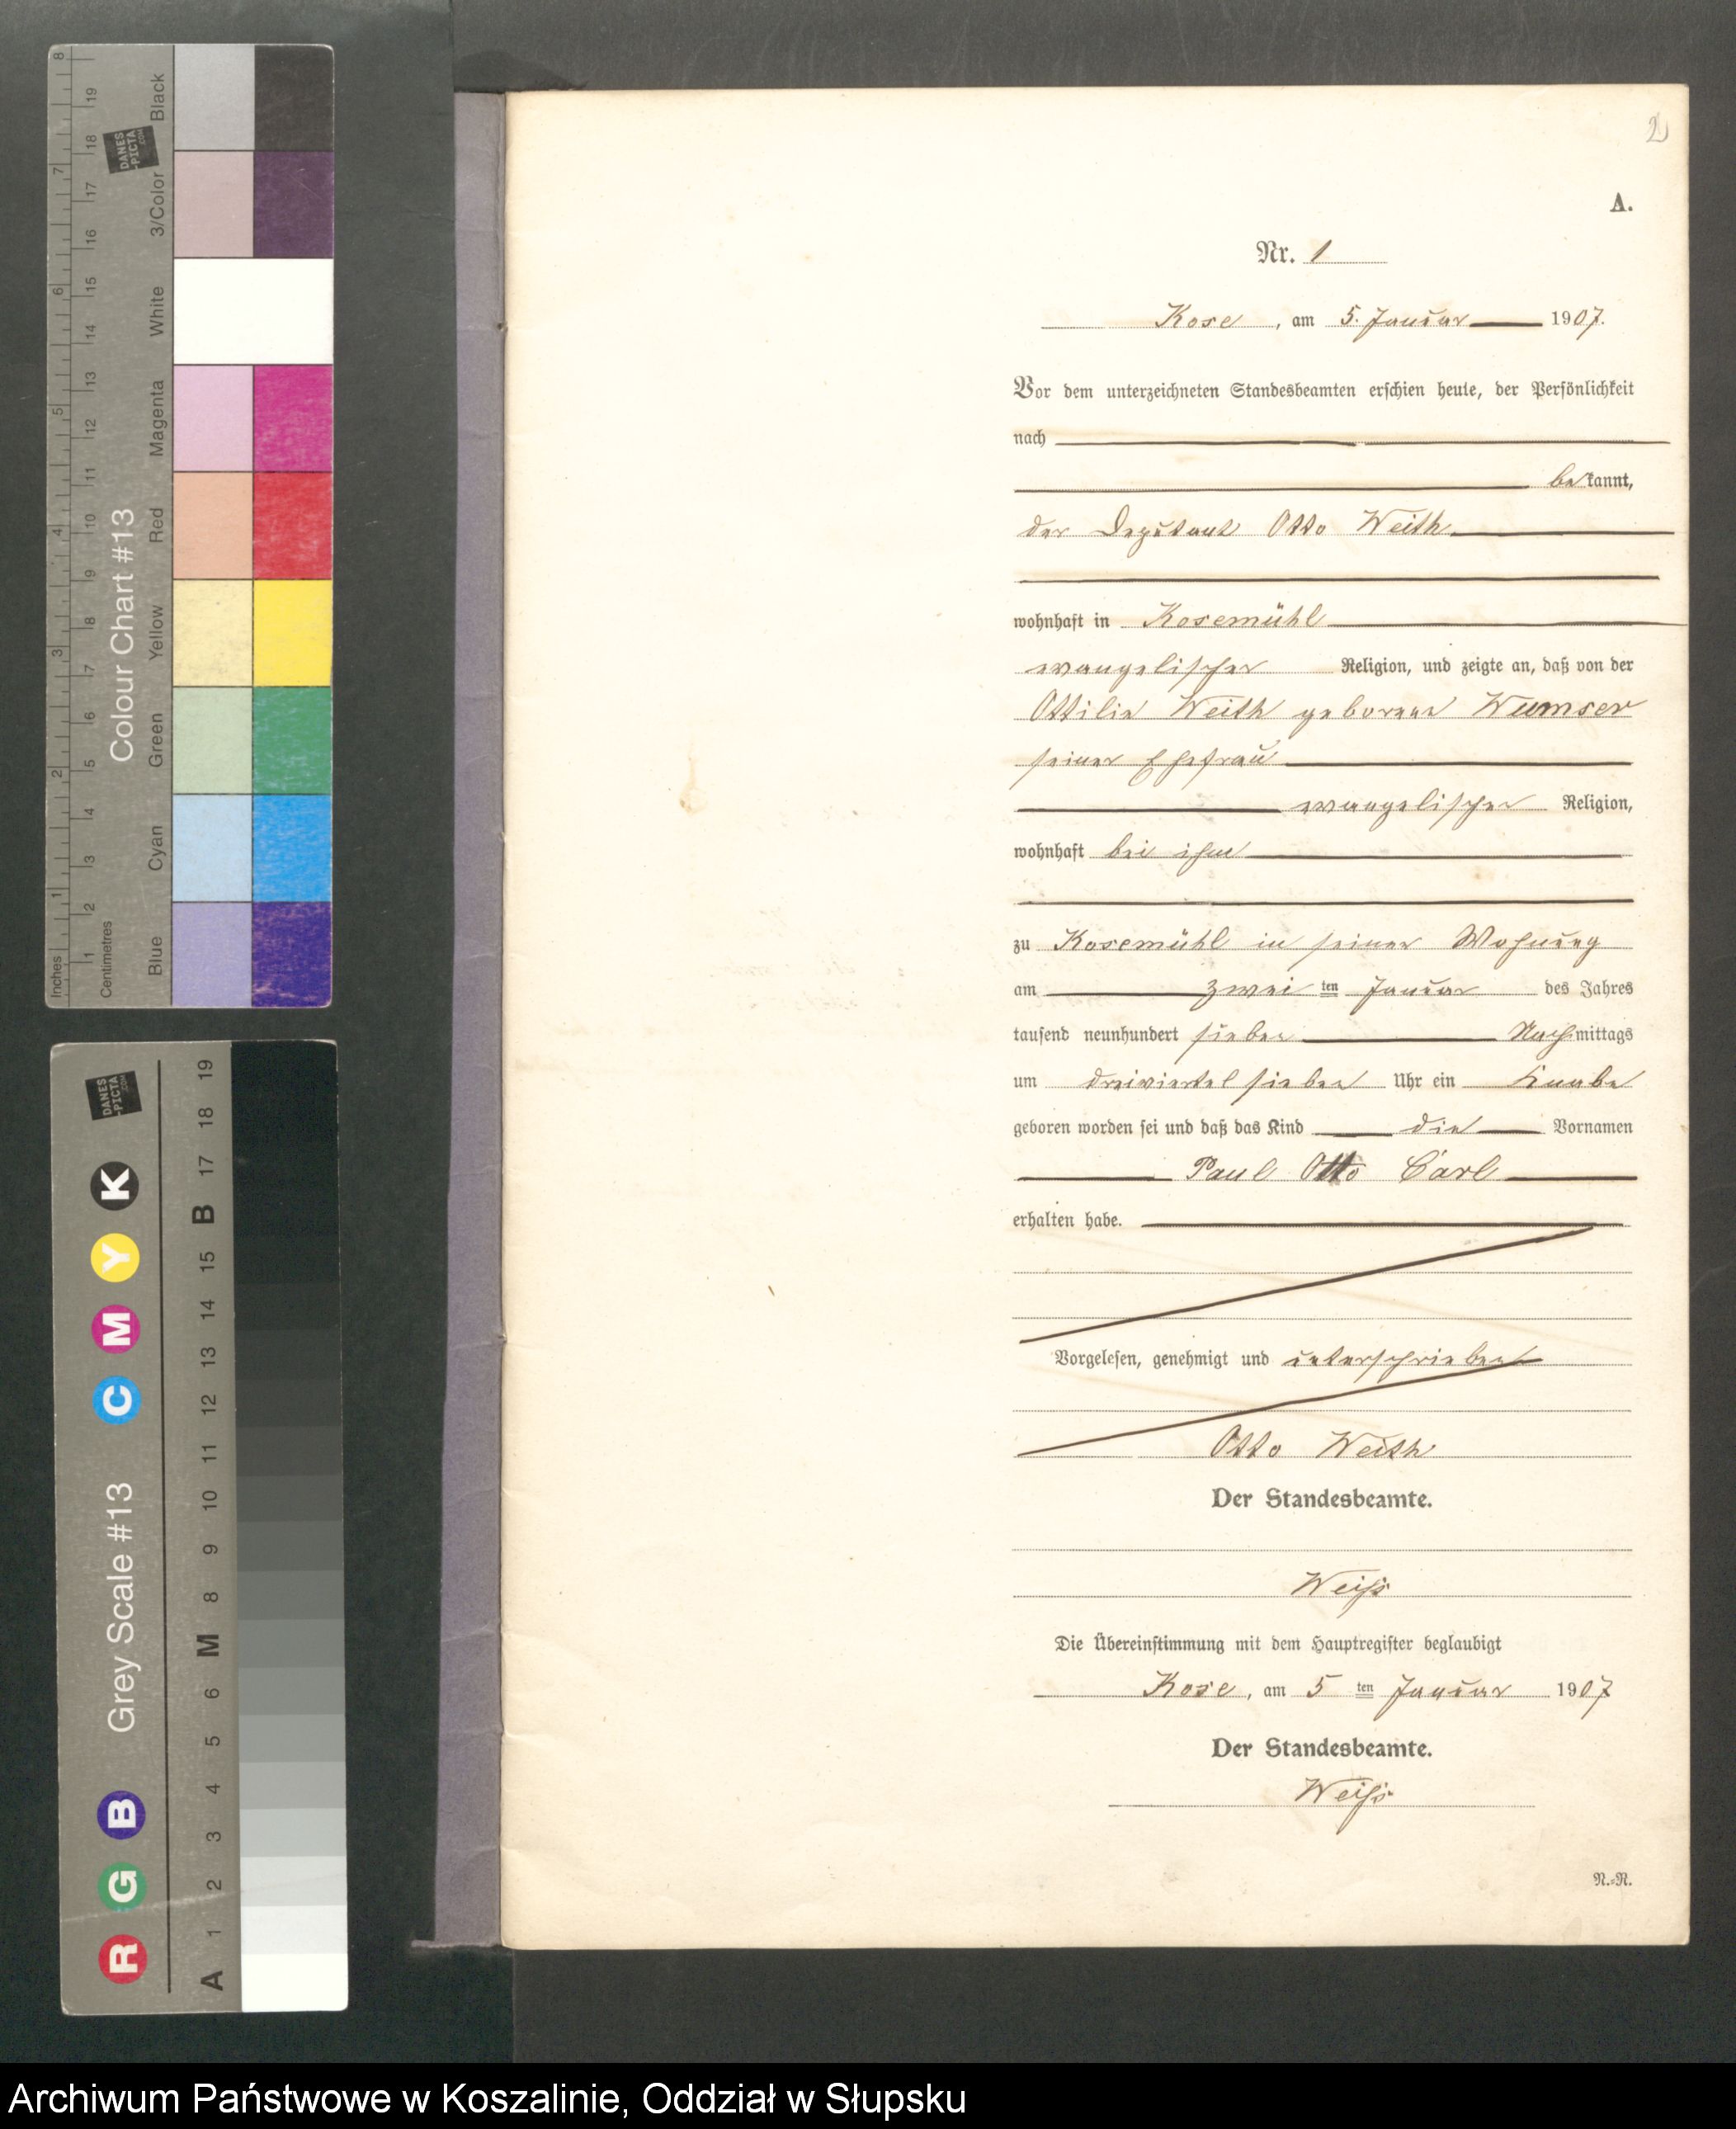 2
A.
Nr. 1
Kose, am 5. Januar 1907.
Vor dem unterzeichneten Standesbeamten erschien heute, der Persönlichkeit
nach
bekannt,
der Deputant Otto Weith
wohnhaft in Kosemühl
evangelischer Religion, und zeigte an, daß von der
Ottilie Weith geborene Wumser
seiner Ehefrau
evangelischer Religion,
wohnhaft bei ihm
zu Kosemühl in seiner Wohnung
am zwei ten Januar des Jahres
tausend neunhundert sieben Nachmittags
um dreiviertel sieben Uhr ein Knabe
geboren worden sei und daß das Kind die Vornamen
Paul Otto Carl
erhalten habe.
Vorgelesen, genehmigt und unterschrieben
Otto Weith
Der Standesbeamte.
Weiß
Die Übereinstimmung mit dem Hauptregister beglaubigt
Kose, am 5 ten Januar 1907
Der Standesbeamte.
Weiß
N.=N.
Colour Chart #13
Inches 1 2 3 4 5 6 7 8
Centimetres 1 2 3 4 5 6 7 8 9 10 11 12 13 14 15 16 17 18 19
Blue Cyan Green Yellow Red Magenta White 3/Color Black
DANES
-PICTA
.COM
Grey Scale #13
R G B C M Y K
DANES
-PICTA
.COM
A 1 2 3 4 5 6 M 8 9 10 11 12 13 14 15 B 17 18 19
Archiwum Państwowe w Koszalinie, Oddział w Słupsku